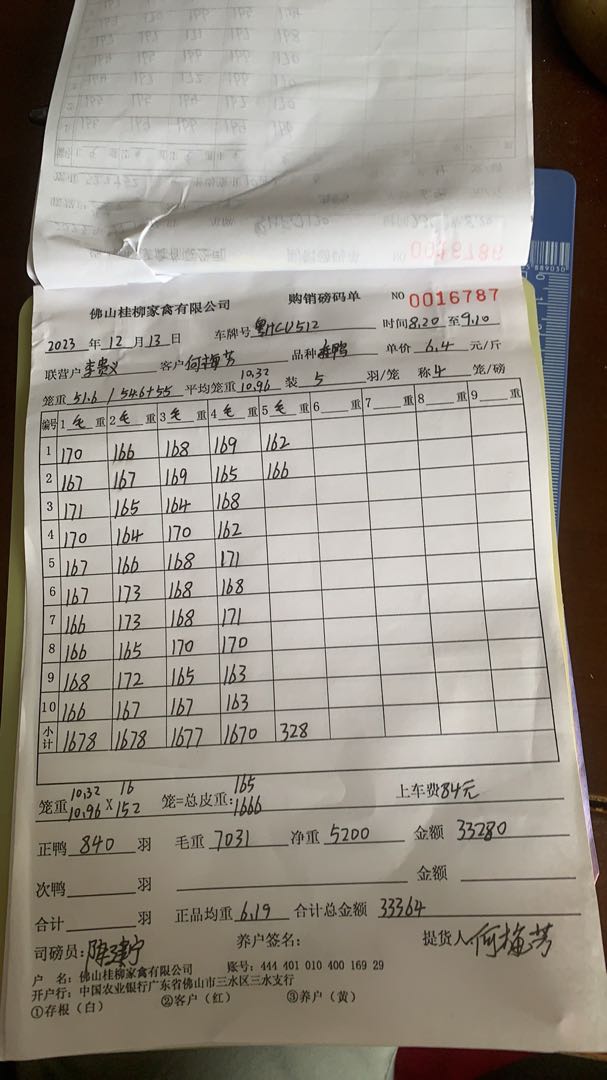 0016786
佛山桂柳家禽有限公司 购销磅码单 NO 0016787
2023 年 12 月 13 日 车牌号 粤HCU512 时间 8.20 至 9.10
联营户 李贵义 客户 何梅芳 品种 单价 6.4 元/斤
10.32
笼重 51.6 / 54.6+55 平均笼重 10.96 装 5 羽/笼 称 4 笼/磅
编号 1 毛 重 2 毛 重 3 毛 重 4 毛 重 5 毛 重 6 重 7 重 8 重 9 重
1 170 166 168 169 162
2 167 167 169 165 166
3 171 165 164 168
4 170 164 170 162
5 167 166 168 171
6 167 173 168 168
7 166 173 168 171
8 166 165 170 170
9 168 172 165 163
10 166 167 167 163
小计 1678 1678 1677 1670 328
10.32 16 165
笼重 10.96 X 152 笼=总皮重: 1666 上车费 84元
正鸭 840 羽 毛重 7031 净重 5200 金额 33280
次鸭 羽 金额
合计 羽 正品均重 6.19 合计总金额 33364
司磅员: 养户签名: 提货人 何梅芳
户 名: 佛山桂柳家禽有限公司 账号: 444 401 010 400 169 29
开户行: 中国农业银行广东省佛山市三水区三水支行
①存根（白） ②客户（红） ③养户（黄）